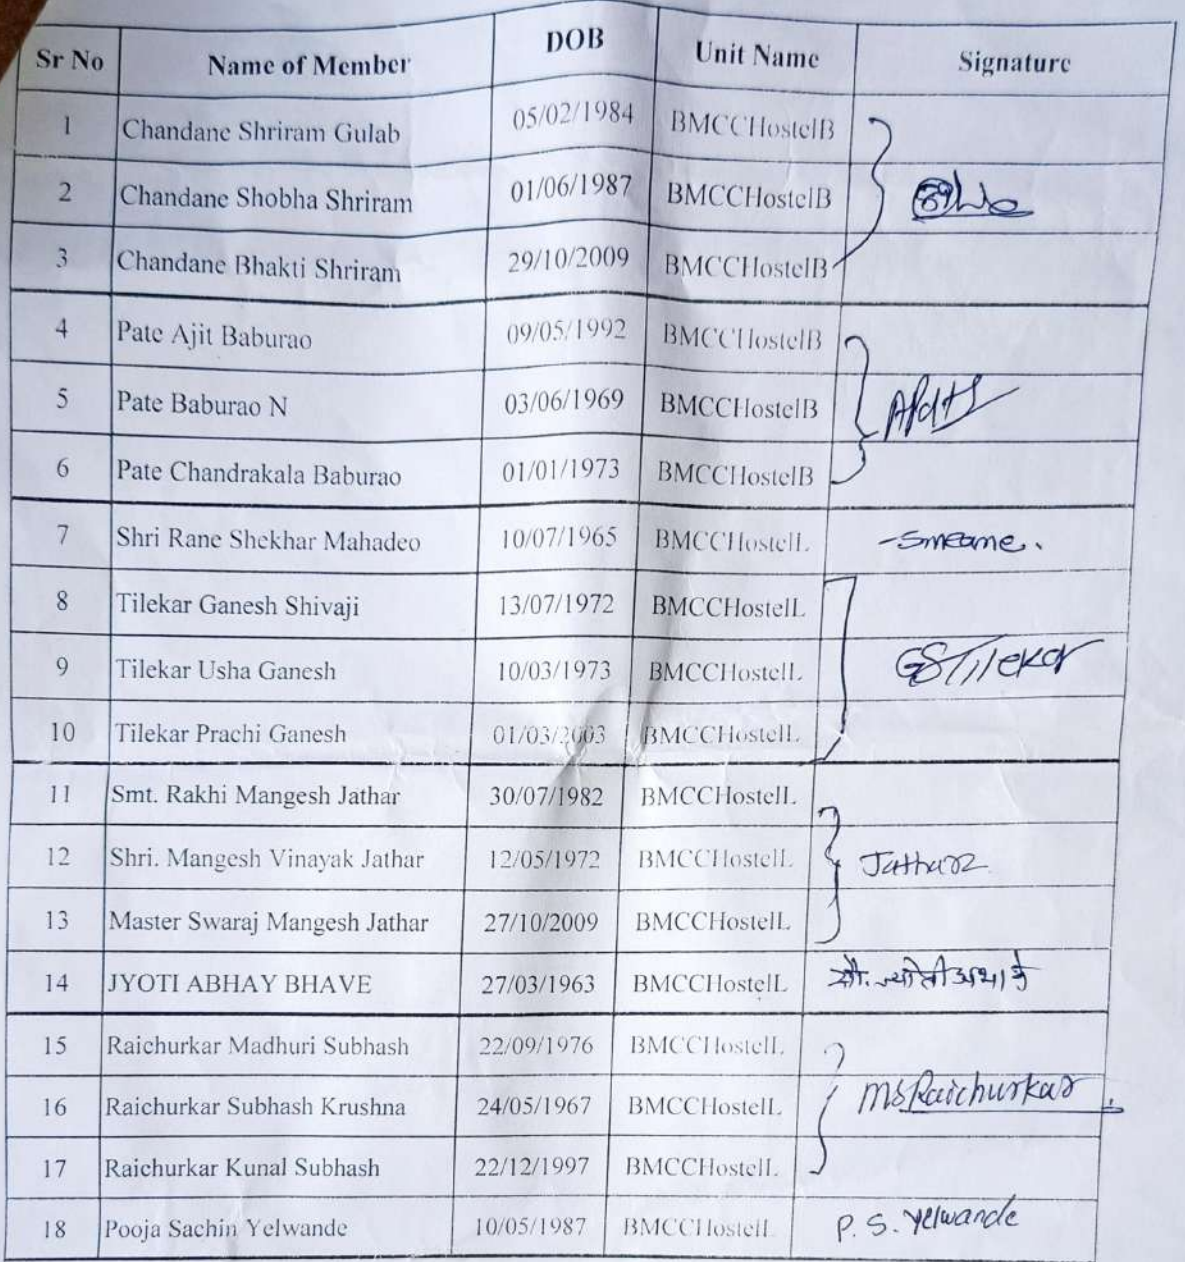 Sr No Name of Member DOB Unit Name Signature
1 Chandane Shriram Gulab 05/02/1984 BMCCHostelB
2 Chandane Shobha Shriram 01/06/1987 BMCCHostelB
3 Chandane Bhakti Shriram 29/10/2009 BMCCHostelB
4 Pate Ajit Baburao 09/05/1992 BMCCHostelB
5 Pate Baburao N 03/06/1969 BMCCHostelB
6 Pate Chandrakala Baburao 01/01/1973 BMCCHostelB
7 Shri Rane Shekhar Mahadeo 10/07/1965 BMCCHostelL
8 Tilekar Ganesh Shivaji 13/07/1972 BMCCHostelL
9 Tilekar Usha Ganesh 10/03/1973 BMCCHostelL GSTilekar
10 Tilekar Prachi Ganesh 01/03/2003 BMCCHostelL
11 Smt. Rakhi Mangesh Jathar 30/07/1982 BMCCHostelL
12 Shri. Mangesh Vinayak Jathar 12/05/1972 BMCCHostelL
13 Master Swaraj Mangesh Jathar 27/10/2009 BMCCHostelL
14 JYOTI ABHAY BHAVE 27/03/1963 BMCCHostelL
15 Raichurkar Madhuri Subhash 22/09/1976 BMCCHostelL
16 Raichurkar Subhash Krushna 24/05/1967 BMCCHostelL MSRaichurkar
17 Raichurkar Kunal Subhash 22/12/1997 BMCCHostelL
18 Pooja Sachin Yelwande 10/05/1987 BMCCHostelL P. S. Yelwande